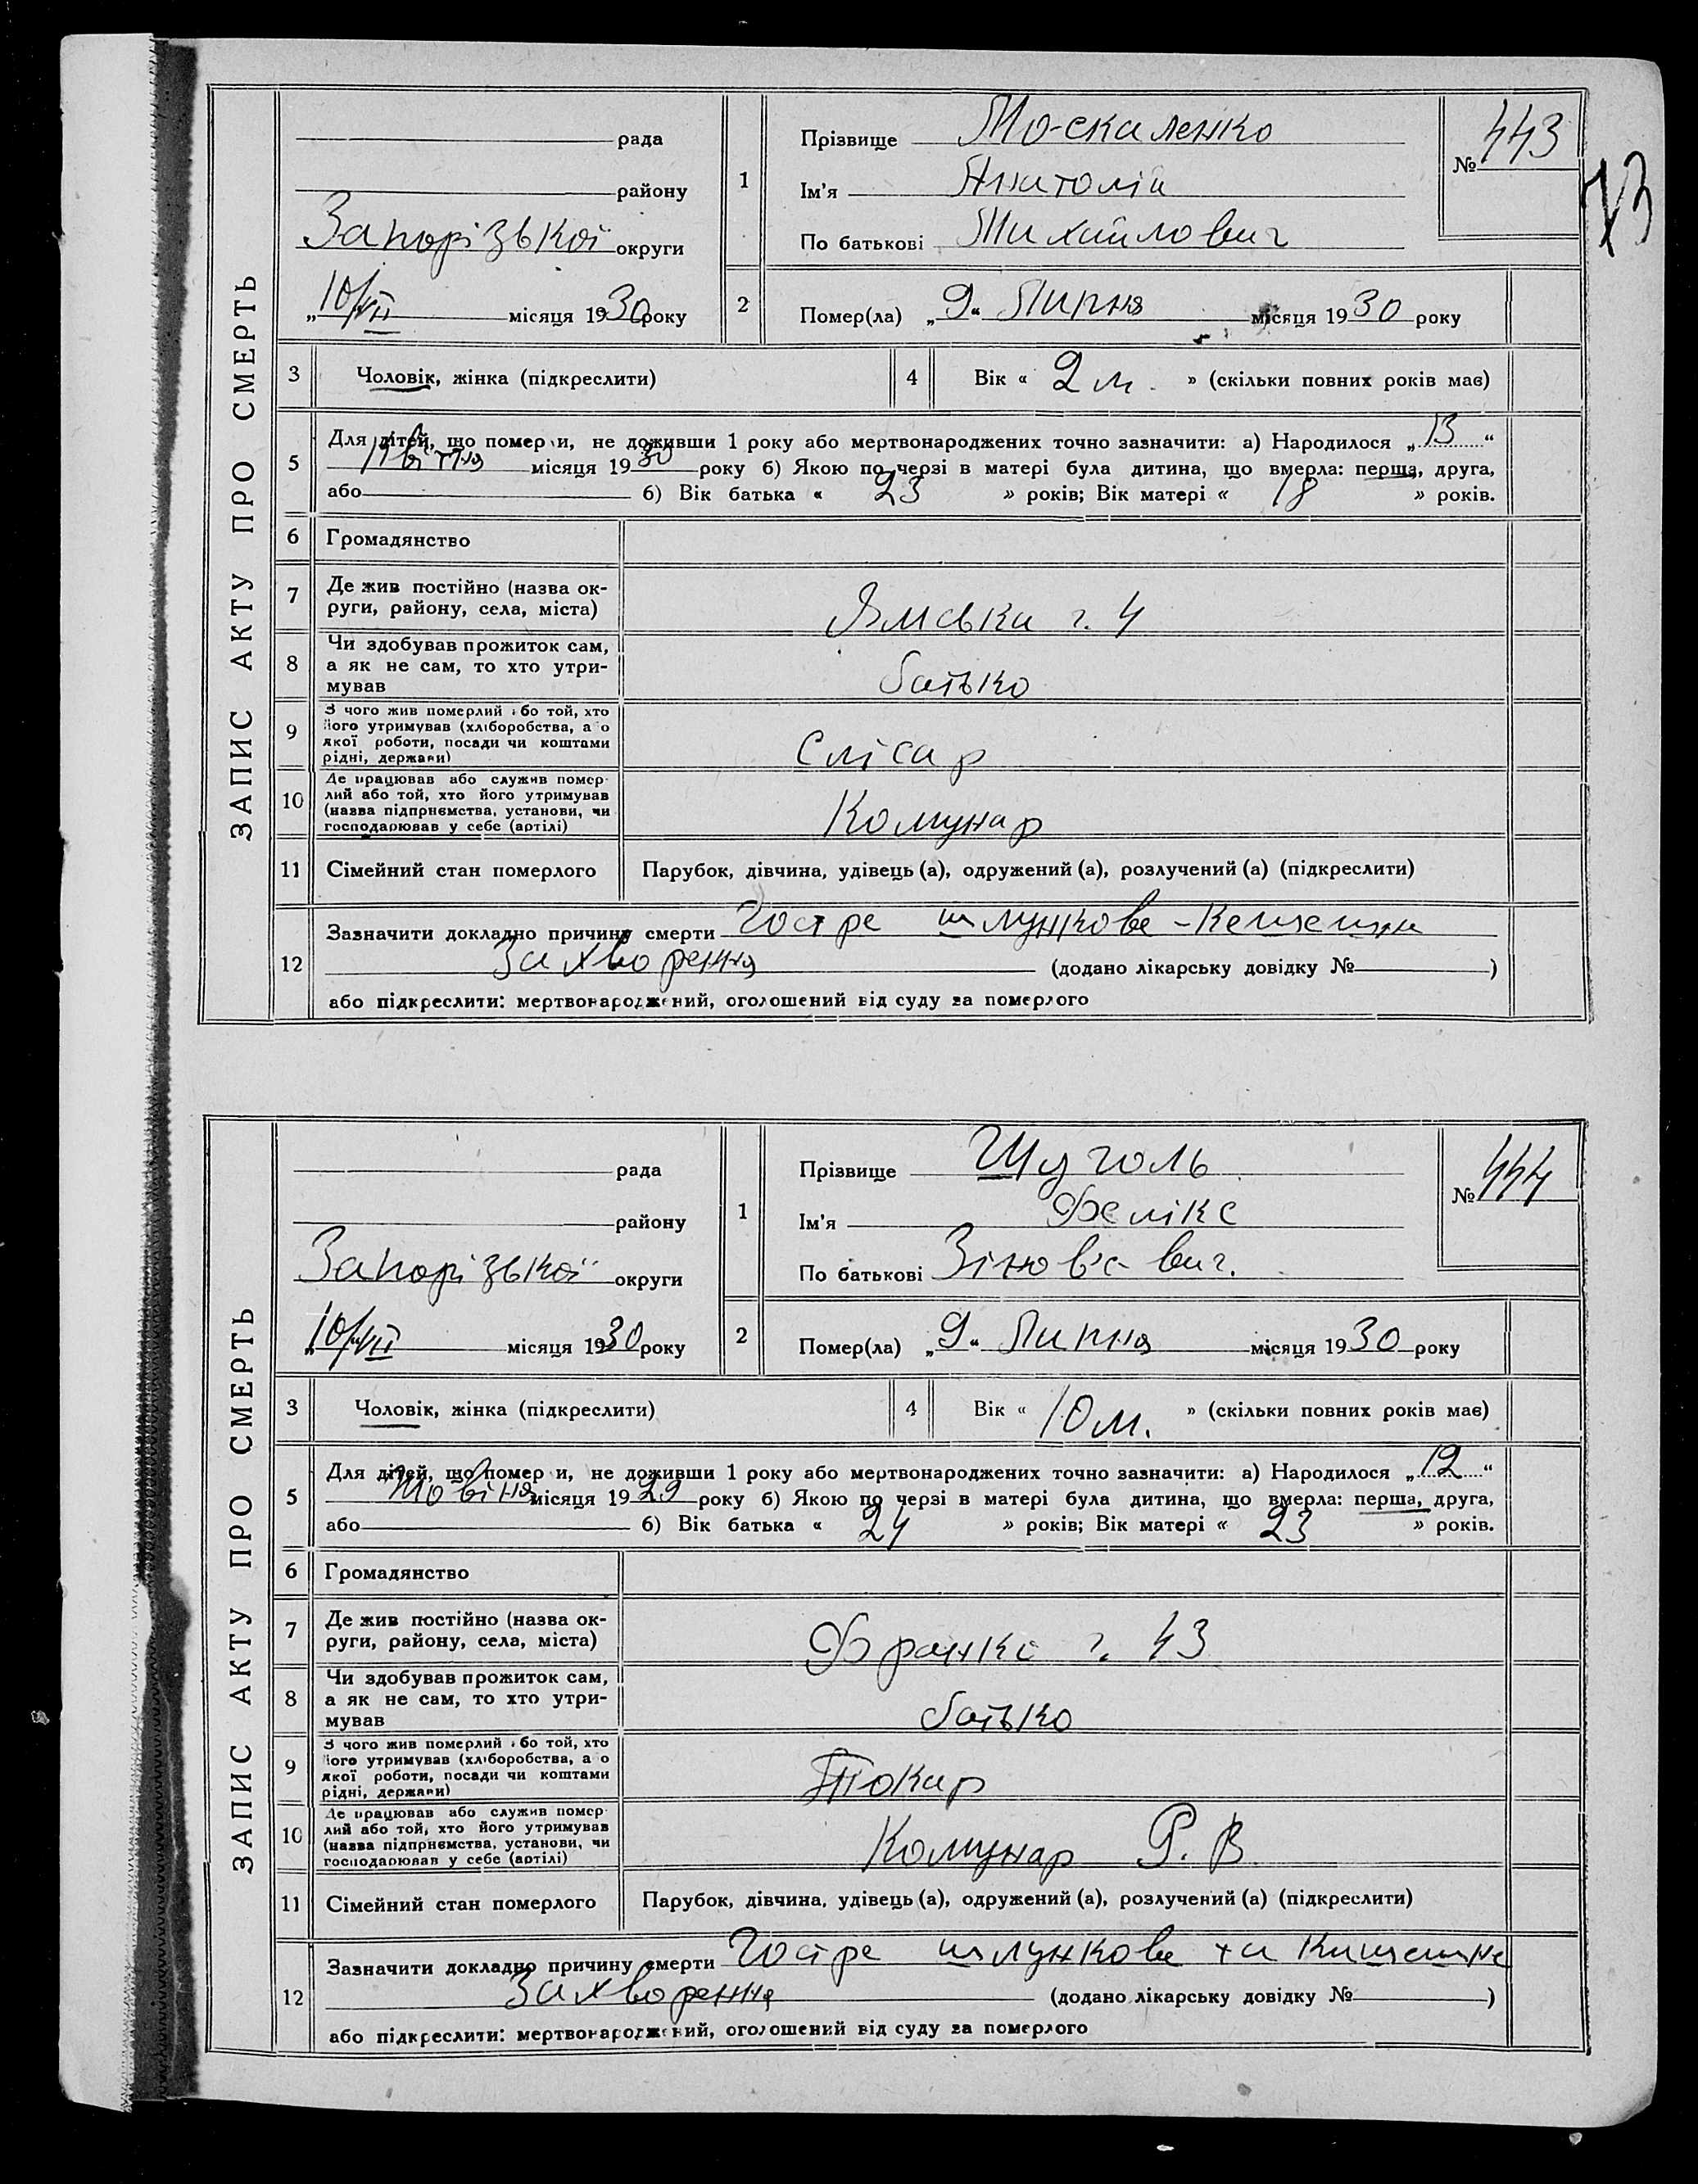 ЗАПИС АКТУ ПРО СМЕРТЬ
рада
району
Запорізької округи
„10/VII місяця 1930 року
1
Прізвище Москаленко
Ім'я Анатолій
По батькові Михайлович
№ 443
73
2
Помер(ла) „9“ Липня місяця 1930 року
3 Чоловік, жінка (підкреслити)
4 Вік « 2 м. » (скільки повних років має)
5 Для дітей, що померли, не доживши 1 року або мертвонароджених точно зазначити: а) Народилося „13“
Квітня місяця 1930 року б) Якою по черзі в матері була дитина, що вмерла: перша, друга,
або б) Вік батька « 23 » років; Вік матері « 18 » років.
6 Громадянство
7 Де жив постійно (назва ок-
руги, району, села, міста)
Ямська ч. 4
8 Чи здобував прожиток сам,
а як не сам, то хто утри-
мував
батько
9 З чого жив померлий або той, хто
його утримував (хліборобства, або
якої роботи, посади чи коштами
рідні, держави)
Слісар
10 Де працював або служив помер-
лий або той, хто його утримував
(назва підприємства, установи, чи
господарював у себе (артілі)
Комунар
11 Сімейний стан померлого Парубок, дівчина, удівець (а), одружений (а), розлучений (а) (підкреслити)
12 Зазначити докладно причину смерти Гостре шлункове-
Захворення (додано лікарську довідку № )
або підкреслити: мертвонароджений, оголошений від суду за померлого
ЗАПИС АКТУ ПРО СМЕРТЬ
рада
району
Запорізької округи
„10/VII місяця 1930 року
1
Прізвище Шуголь
Ім'я Фелікс
По батькові Зіновєвич.
№ 444
2
Помер(ла) „9“ Липня місяця 1930 року
3 Чоловік, жінка (підкреслити)
4 Вік « 10 м. » (скільки повних років має)
5 Для дітей, що померли, не доживши 1 року або мертвонароджених точно зазначити: а) Народилося „12“
Жовтня місяця 1929 року б) Якою по черзі в матері була дитина, що вмерла: перша, друга,
або б) Вік батька « 24 » років; Вік матері « 23 » років.
6 Громадянство
7 Де жив постійно (назва ок-
руги, району, села, міста)
Франка ч. 43
8 Чи здобував прожиток сам,
а як не сам, то хто утри-
мував
батько
9 З чого жив померлий або той, хто
його утримував (хліборобства, або
якої роботи, посади чи коштами
рідні, держави)
Токар
10 Де працював або служив помер-
лий або той, хто його утримував
(назва підприємства, установи, чи
господарював у себе (артілі)
Комунар Р. В
11 Сімейний стан померлого Парубок, дівчина, удівець (а), одружений (а), розлучений (а) (підкреслити)
12 Зазначити докладно причину смерти Гостре шлункове та Кишешне
Захворення (додано лікарську довідку № )
або підкреслити: мертвонароджений, оголошений від суду за померлого